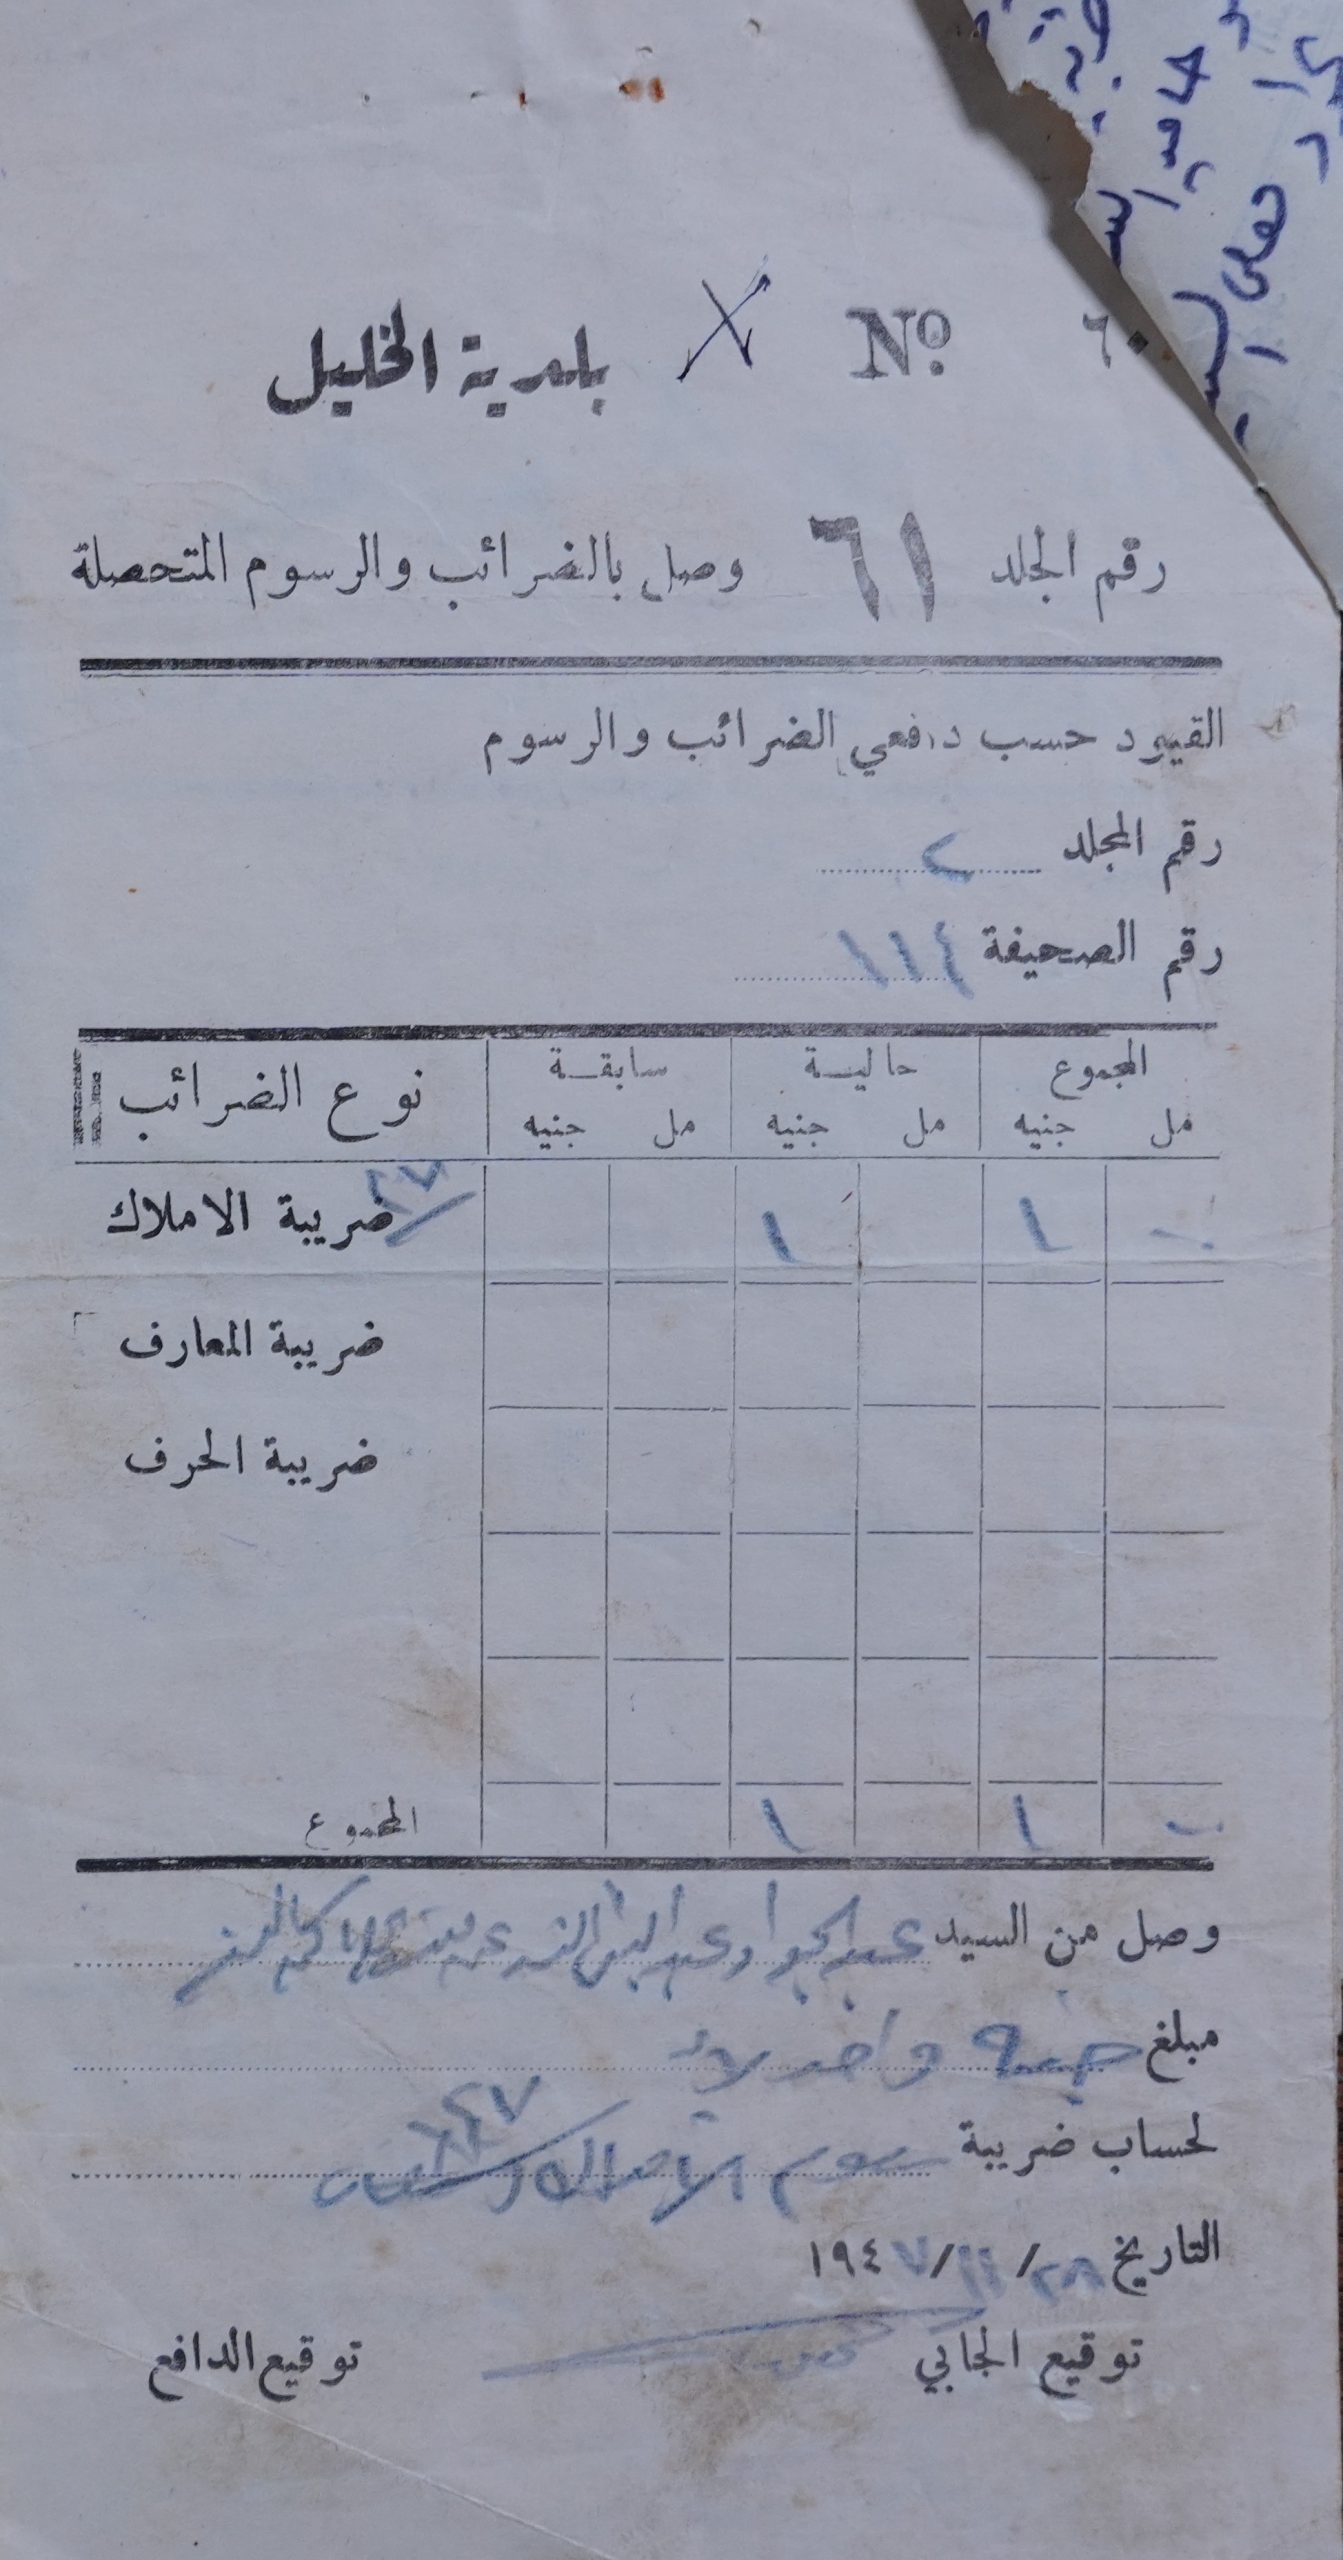 بلدية الخليل No. ٦٠
رقم الجلد ٦١ وصل بالضرائب والرسوم المتحصلة
القيود حسب دفعي الضرائب والرسوم
رقم المجلد ٢
رقم الصحيفة ١١٤
المجموع حالية سابقة نوع الضرائب
مل جنيه مل جنيه مل جنيه
- ١ ١ ضريبة الاملاك ٤٧
ضريبة المعارف
ضريبة الحرف
- ١ ١ المجموع
وصل من السيد عبد الجواد وعبد
مبلغ جنيه واحد لا
لحساب ضريبة
التاريخ ٢٨/ ١١/ ١٩٤٧
توقيع الجابي توقيع الدافع